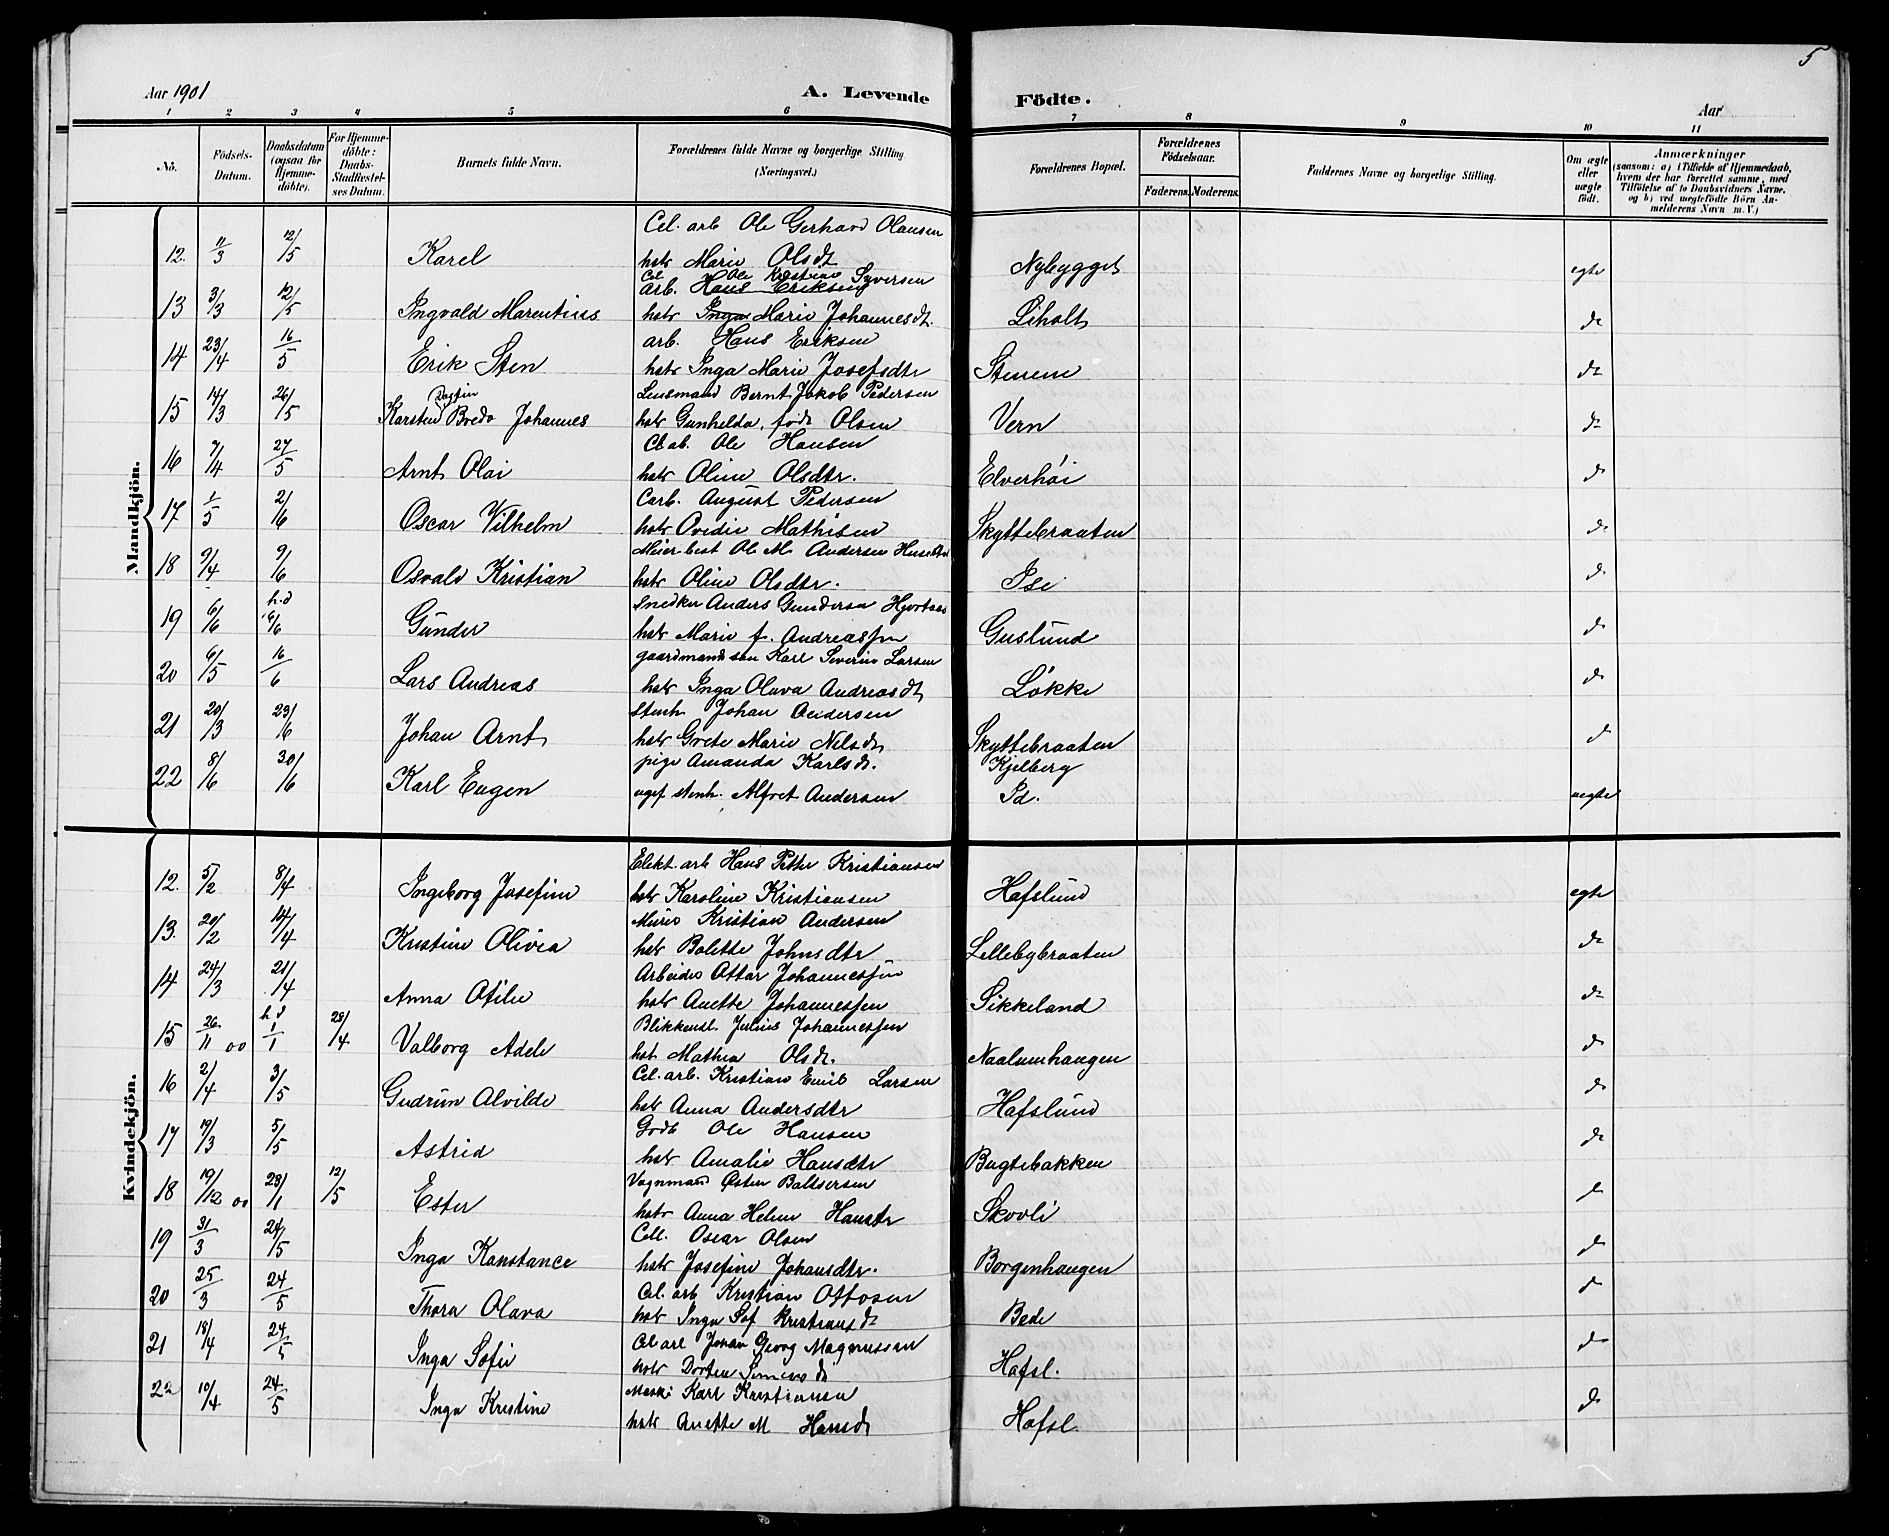 5
Aar 1901
A. Levende Födte.
Aar
1 2 3 4 5 6 7 8 9 10 11
No.
Födsels-Datum.
Daabsdatum (ogsaa for Hjemme-döbte).
For Hjemme-döbte: Daabs-Stadfæstel-ses Datum.
Barnets fulde Navn.
Forældrenes fulde Navne og borgerlige Stilling (Næringsvei.)
Forældrenes Bopæl.
Forældrenes Födselsaar.
Faderens. Moderens.
Faddernes Navne og borgerlige Stilling.
Om ægte eller uægte födt.
Anmærkninger
(saasom: a) i Tilfælde af Hjemmedaab, hvem der har forrettet samme, med Tilföielse af to Daabsvidners Navne. og b) ved uægtefödte Börn An-melderens Navn m. V.)
Mandkjön.
Cel. arb Ole Gerhard Olausen
12. 11/3 12/5 Karel hstr Marie Olsdt Nybygget egte
Cel. Ole Kristian Syversen
arb. Hans Eriksen
13 3/3 12/5 Ingvald Marentius hstr Inga Marie Johannesdt. Liholt do
arb. Hans Eriksen
14 23/4 16/5 Erik Sten hstr Inga Marie Josefsdtr Stenene do
Dagfin Lensmand Bernt Jakob Pedersen
15 14/3 26/5 Karsten Bredo Johannes hstr Gunhelda, född Olsen Vern do
Cl ab. Ole Hansen
16 7/4 27/5 Arnt Olai hstr Oline Olsdtr. Elverhöi do
Carb. August Pedersen
17 1/5 2/6 Oscar Vilhelm hstr Ovidie Mathisen Skyttebraaten do
Meier best Ole M. Andersen
18 9/4 9/6 Osvald Kristian hstr Oline Olsdtr. Ise do
h.d Snedker Anders Gundersen
19 6/6 16/6 Gunder hstr Marie f. Andreassen Guslund do
gaardmandssön Karl Severin Larsen
20 6/5 16/6 Lars Andreas hstr Inga Olava Andreasdt Lökke do
Stenh. Johan Andersen
21 20/3 23/6 Johan Arnt hstr Grete Marie Nilsdt Skyttebraaten do
pige Amanda Karlsdt. Kjelberg
22 8/6 30/6 Karl Eugen ugif stenh. Alfret Andersen Sd. uegte
Kvindekjön.
Elekt. arb Hans Petter Kristiansen
12. 5/2 8/4 Ingeborg Josefine hstr Karoline Kristiansen Hafslund egte
Murer Kristian Andersen
13. 20/2 14/4 Kristine Olivia hstr Bolette Johnsdtr Lellebybraaten do
Arbeider Ottar Johannessen
14 24/3 21/4 Anna Otilie hstr Anette Johannessen Sikkeland do
h.d Blikkensl. Julius Johannessen
15 26/11 00 1/1 28/4 Valborg Adele hst. Mathea Olsdt. Naalumhaugen do
Cel. arb. Kristian Emil Larsen
16 2/4 3/5 Gudrun Alvilde hstr Anna Andersdtr Hafslund do
Grdb Ole Hansen
17 19/3 5/5 Astrid hstr Amalie Hansdtr Bugtebakken do
Vognmand Östen Baltsersen
18 19/12 00 28/1 12/5 Ester hstr Anna Helene Hansdtr Skovli do
Cell. Oscar Olsen
19 31/3 24/5 Inga Konstance hstr Josefine Johansdtr. Borgenhaugen do
Cel. arb Kristian Ottosen
20 25/3 24/5 Thora Olava hstr Inga Sof Kristiansdt Bede do
Cel arb Johan Georg Magnussen
21 18/4 24/5 Inga Sofie hstr Dortea Hafsl. do
Mask. Karl Kristiansen
22 10/4 24/5 Inga Kristine hstr Anette M Hansdt Hafsl. do